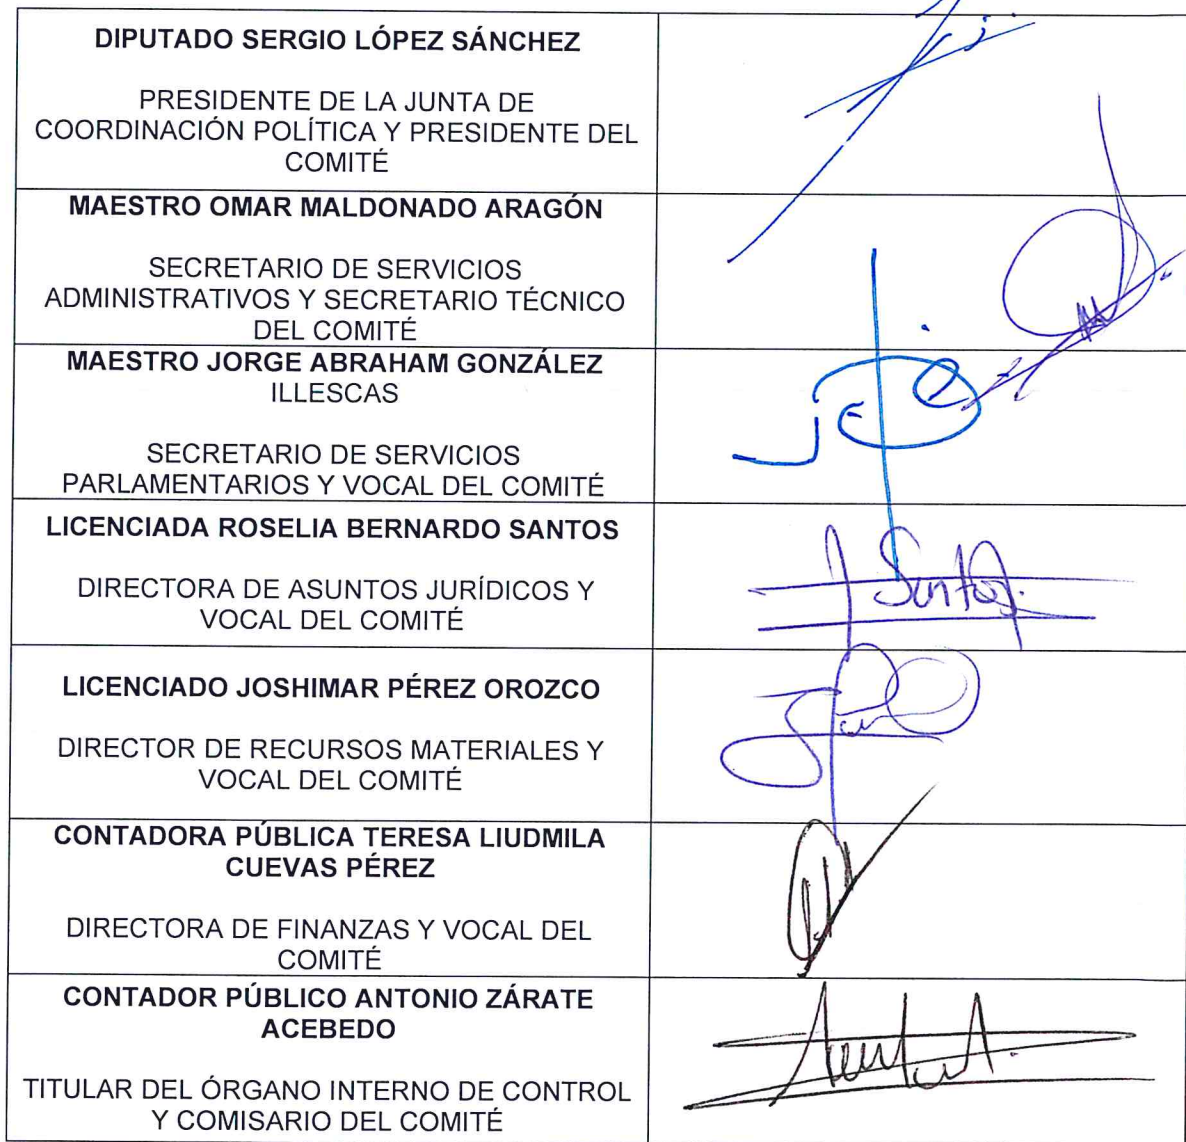 DIPUTADO SERGIO LÓPEZ SÁNCHEZ
PRESIDENTE DE LA JUNTA DE
COORDINACIÓN POLÍTICA Y PRESIDENTE DEL
COMITÉ
MAESTRO OMAR MALDONADO ARAGÓN
SECRETARIO DE SERVICIOS
ADMINISTRATIVOS Y SECRETARIO TÉCNICO
DEL COMITÉ
MAESTRO JORGE ABRAHAM GONZÁLEZ
ILLESCAS
SECRETARIO DE SERVICIOS
PARLAMENTARIOS Y VOCAL DEL COMITÉ
LICENCIADA ROSELIA BERNARDO SANTOS
DIRECTORA DE ASUNTOS JURÍDICOS Y
VOCAL DEL COMITÉ
Santos
LICENCIADO JOSHIMAR PÉREZ OROZCO
DIRECTOR DE RECURSOS MATERIALES Y
VOCAL DEL COMITÉ
CONTADORA PÚBLICA TERESA LIUDMILA
CUEVAS PÉREZ
DIRECTORA DE FINANZAS Y VOCAL DEL
COMITÉ
CONTADOR PÚBLICO ANTONIO ZÁRATE
ACEBEDO
TITULAR DEL ÓRGANO INTERNO DE CONTROL
Y COMISARIO DEL COMITÉ